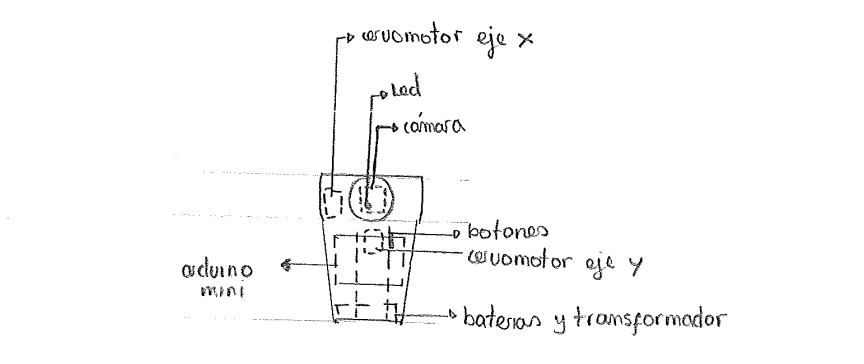 servomotor eje x
Led
cámara
botones
servomotor eje y
arduino
mini
baterias y transformador